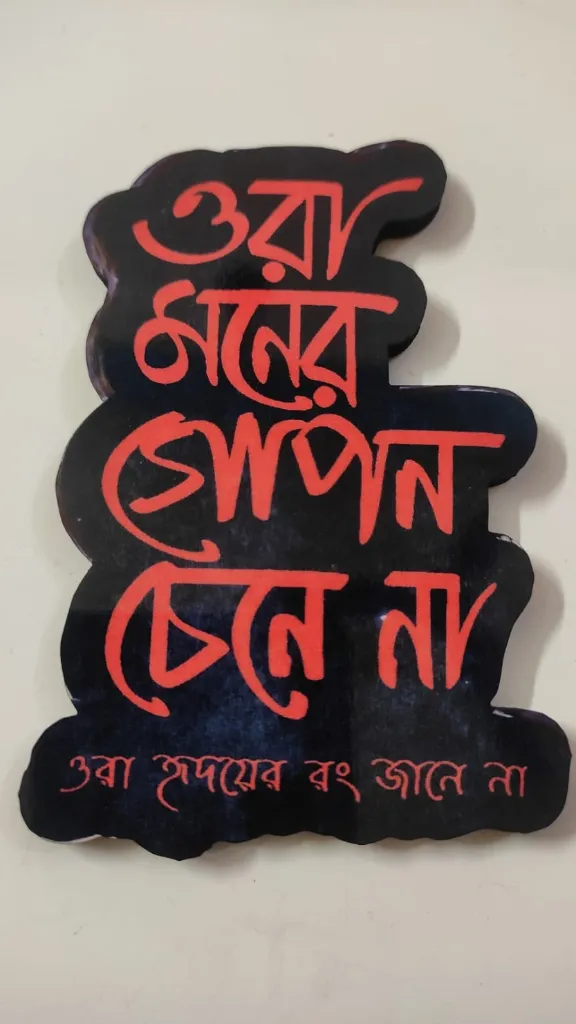 ওরা
মনের
গোপন
চেনে না
ওরা হৃদয়ের রং জানে না